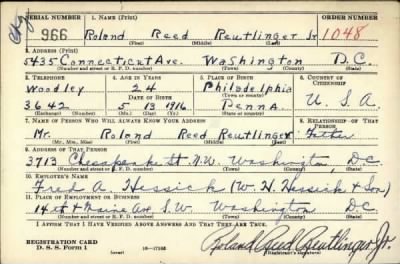 SERIAL NUMBER 1. NAME (Print) ORDER NUMBER
966 Roland Reed Reutlinger Jr 1048
(First) (Middle) (Last)
2. ADDRESS (Print)
5435 Connecticut Ave. Washington D.C.
(Number and street or R. F. D. number) (Town) (County) (State)
3. TELEPHONE 4. AGE IN YEARS 5. PLACE OF BIRTH 6. COUNTRY OF CITIZENSHIP
Woodley 24 Philadelphia
(Town or county)
3642 5 13 1916 Penna. U.S.A
(Exchange) (Number) (Mo.) (Day) (Yr.) (State or country)
7. NAME OF PERSON WHO WILL ALWAYS KNOW YOUR ADDRESS 8. RELATIONSHIP OF THAT PERSON
Mr. Roland Reed Reutlinger Father
(Mr., Mrs., Miss) (First) (Middle) (Last)
9. ADDRESS OF THAT PERSON
3713 Chesapeake St. N.W. Washington, D.C.
(Number and street or R. F. D. number) (Town) (County) (State)
10. EMPLOYER'S NAME
Fred A. Hessick (W. H. Hessick & Son)
11. PLACE OF EMPLOYMENT OR BUSINESS
14 st & Maine Ave S.W. Washington DC
(Number and street or R. F. D. number) (Town) (County) (State)
I AFFIRM THAT I HAVE VERIFIED ABOVE ANSWERS AND THAT THEY ARE TRUE.
REGISTRATION CARD
D. S. S. Form 1 16—17105 Roland Reed Reutlinger Jr.
(Registrant's signature)